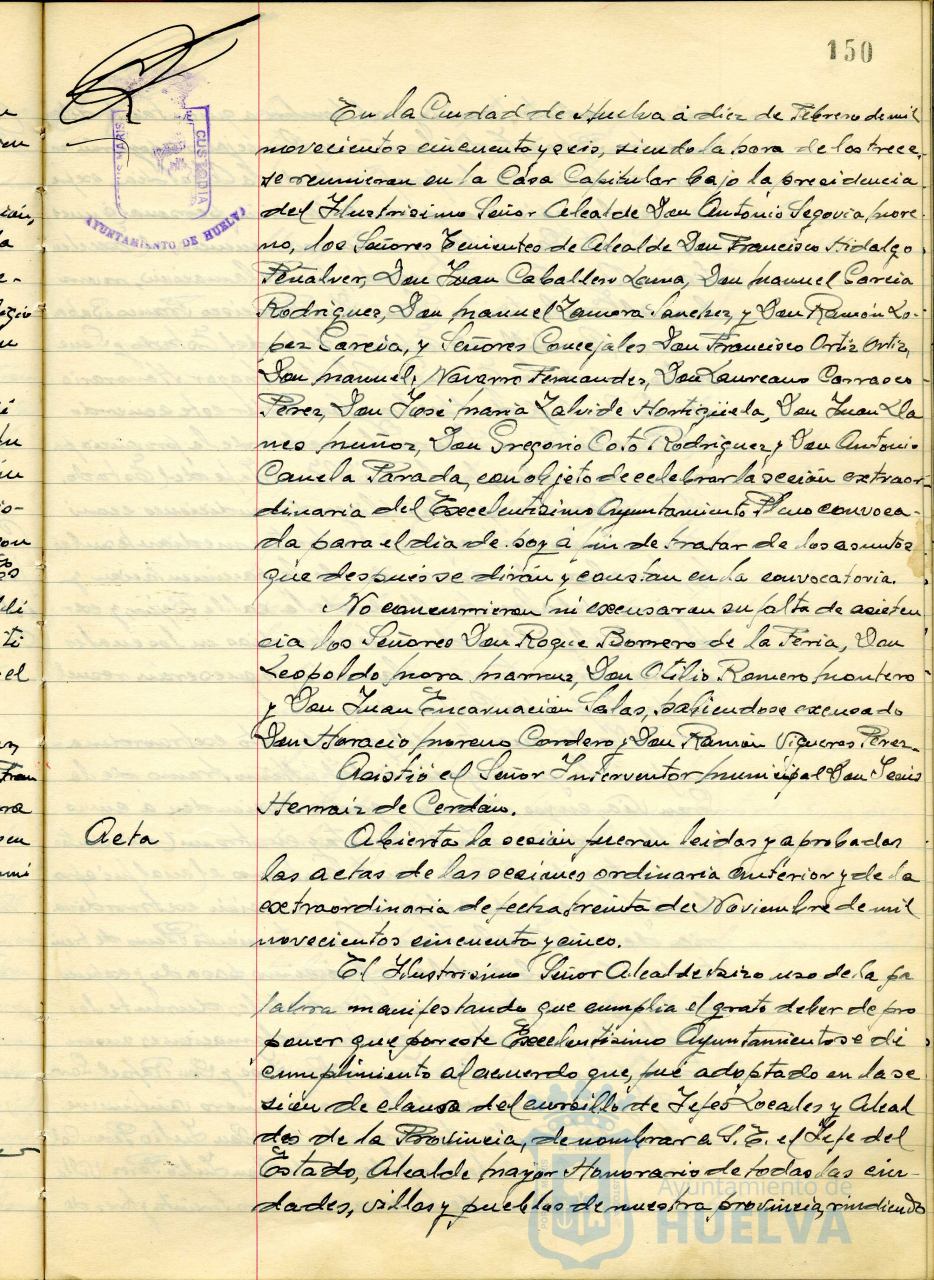 150
PORTUS MARIS
CUSTODIA
AYUNTAMIENTO DE HUELVA
En la Ciudad de Huelva a diez de Febrero de mil
novecientos cincuenta y seis, siendo la hora de las trece,
se reunieron en la Casa Capitular bajo la presidencia
del Ilustrisimo Señor Alcalde Don Antonio Segovia More-
no, los Señores Tenientes de Alcalde Don Francisco Hidalgo
Peñalver, Don Juan Caballero Lama, Don Manuel Garcia
Rodriguez, Don Manuel Zamora Sanchez y Don Ramón Lo-
pez Garcia, y Señores Concejales Don Francisco Ortiz Ortiz,
Don Manuel Navarro Fernandez, Don Laureano Carrasco
Perez, Don José Maria Zalvide Hortigüela, Don Juan Lla
nes Muñoz, Don Gregorio Coto Rodriguez y Don Antonio
Canela Parada, con objeto de celebrar la sesión extraor-
dinaria del Excelentísimo Ayuntamiento Pleno convoca-
da para el dia de hoy a fin de tratar de los asuntos
que despues se dirán y constan en la convocatoria.
No concurrieron ni excusaron su falta de asisten
cia los Señores Don Roque Borrero de la Feria, Don
Leopoldo Mora Marruz, Don Otilio Romero Montero
y Don Juan Encarnación Salas, habiendose excusado
Don Horacio Moreno Cordero y Don Ramón Vigueras Perez.
Asistió el Señor Interventor Municipal Don Jesús
Herraiz de Cerdán.
Acta
Abierta la sesión fueron leidas y aprobadas
las actas de las sesiones ordinaria anterior y de la
extraordinaria de fecha treinta de Noviembre de mil
novecientos cincuenta y cinco.
El Ilustrisimo Señor Alcalde hizo uso de la pa
labra manifestando que cumplia el grato deber de pro
poner que por este Excelentísimo Ayuntamiento se dé
cumplimiento al acuerdo que fué adoptado en la se
sión de clausura del cursillo de Jefes Locales y Alcal
des de la Provincia, de nombrar a S. E. el Jefe del
Estado, Alcalde Mayor Honorario de todas las ciu-
dades, villas y pueblos de nuestra provincia, rindiendo
Ayuntamiento de
HUELVA